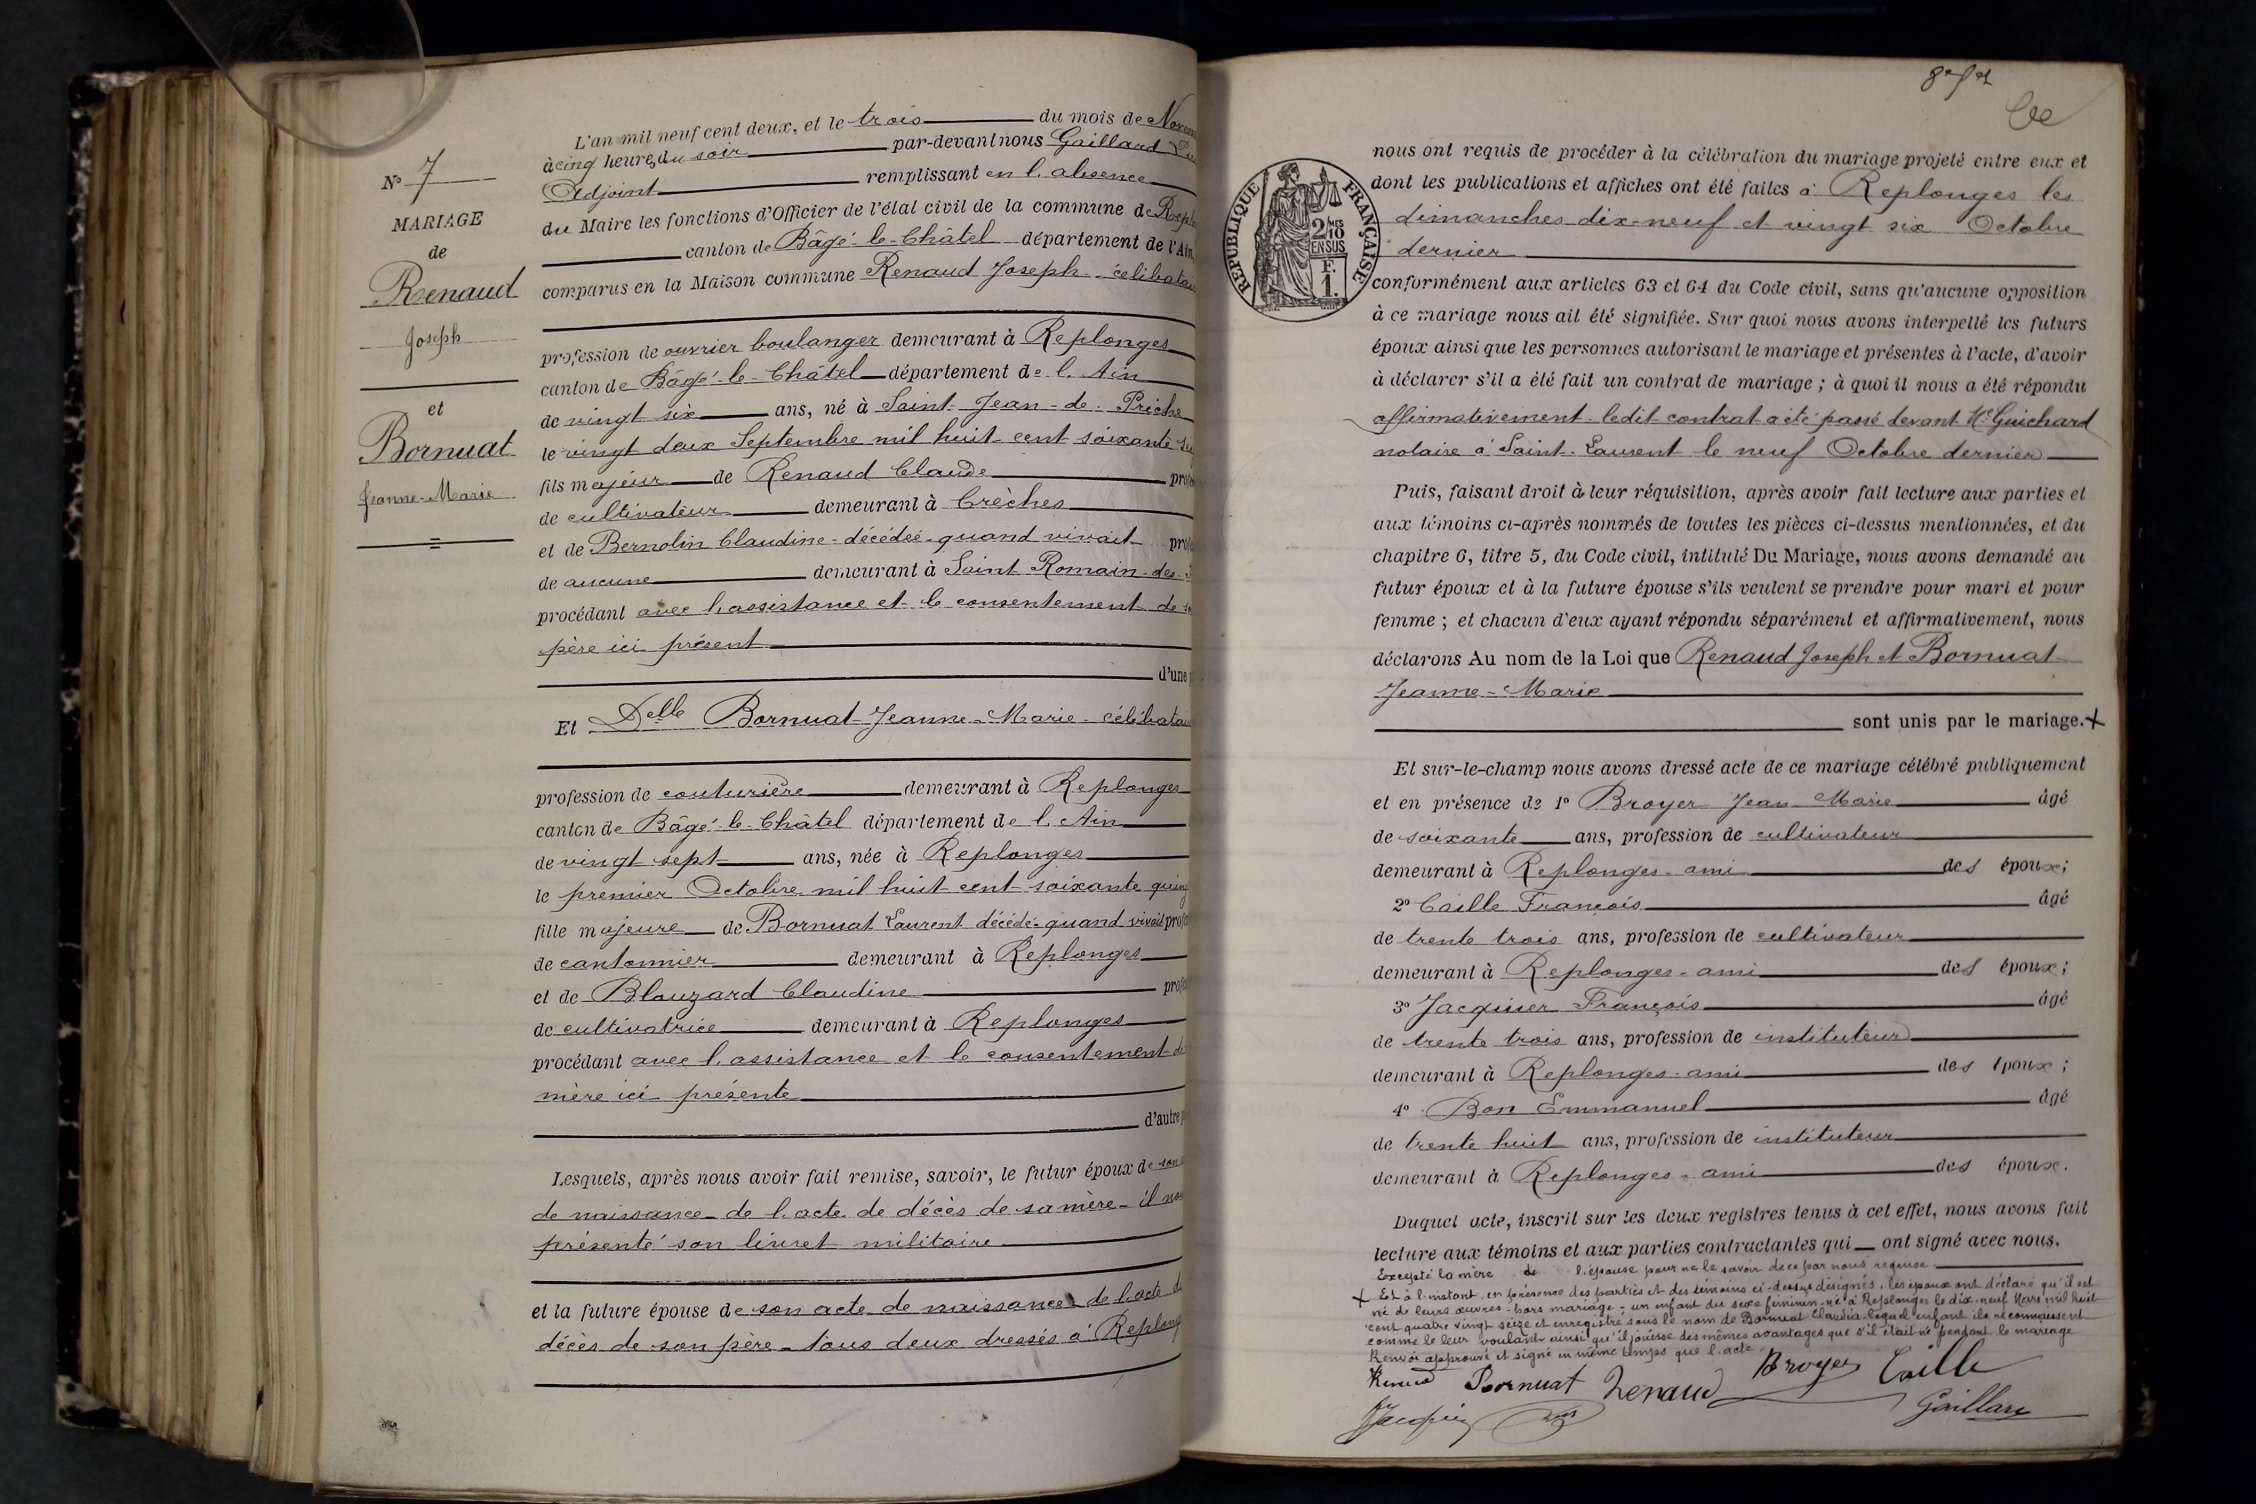 N° 7
MARIAGE
de
Renaud
Joseph
et
Bornuat
Jeanne-Marie
L'an mil neuf cent deux, et le trois du mois de
à cinq heures du soir par-devant nous Gaillard
Adjoint remplissant en l'absence
du Maire les fonctions d'Officier de l'état civil de la commune de
canton de Bâgé-le-Châtel département de l'Ain,
comparus en la Maison commune Renaud Joseph célibatai
profession de ouvrier boulanger demeurant à Replonges
canton de Bâgé-le-Châtel département de l'Ain
de vingt six ans, né à Saint-Jean-de-Priche
le vingt deux Septembre mil huit cent soixante
fils majeur de Renaud Claude
de cultivateur demeurant à Crèches
et de Bernolin Claudine - décédée - quand vivait
de aucune demeurant à Saint Romain-des-
procédant avec l'assistance et le consentement de
père ici présent
d'une
Et Delle Bornuat Jeanne-Marie - célibatai
profession de couturière demeurant à Replonges
canton de Bâgé-le-Châtel département de l'Ain
de vingt sept ans, née à Replonges
le premier Octobre mil huit cent soixante quin
fille majeure de Bornuat Laurent décédé - quand vivait
de cantonnier demeurant à Replonges
et de Blouzard Claudine
de cultivatrice demeurant à Replonges
procédant avec l'assistance et le consentement de
mère ici présente
d'autre
Lesquels, après nous avoir fait remise, savoir, le futur époux de son
de naissance - de l'acte de décès de sa mère - il nous
présenté son livret militaire
et la future épouse de son acte de naissance - de l'acte de
décès de son père - tous deux dressés à Replong
REPUBLIQUE FRANÇAISE
2/10
EN SUS
F.
1.
nous ont requis de procéder à la célébration du mariage projeté entre eux et
dont les publications et affiches ont été faites à Replonges les
dimanches dix-neuf et vingt six Octobre
dernier
conformément aux articles 63 et 64 du Code civil, sans qu'aucune opposition
à ce mariage nous ait été signifiée. Sur quoi nous avons interpellé les futurs
époux ainsi que les personnes autorisant le mariage et présentes à l'acte, d'avoir
à déclarer s'il a été fait un contrat de mariage ; à quoi il nous a été répondu
affirmativement - ledit contrat a été passé devant Me Guichard
notaire à Saint-Laurent le neuf Octobre dernier
Puis, faisant droit à leur réquisition, après avoir fait lecture aux parties et
aux témoins ci-après nommés de toutes les pièces ci-dessus mentionnées, et du
chapitre 6, titre 5, du Code civil, intitulé Du Mariage, nous avons demandé au
futur époux et à la future épouse s'ils veulent se prendre pour mari et pour
femme ; et chacun d'eux ayant répondu séparément et affirmativement, nous
déclarons Au nom de la Loi que Renaud Joseph et Bornuat
Jeanne-Marie
sont unis par le mariage. X
Et sur-le-champ nous avons dressé acte de ce mariage célébré publiquement
et en présence de 1° Broyer Jean Marie âgé
de soixante ans, profession de cultivateur
demeurant à Replonges - ami des époux;
2° Caille François âgé
de trente trois ans, profession de cultivateur
demeurant à Replonges - ami des époux;
3° Jacquier François âgé
de trente trois ans, profession de instituteur
demeurant à Replonges - ami des époux;
4° Bon Emmanuel âgé
de trente huit ans, profession de instituteur
demeurant à Replonges - ami des époux.
Duquel acte, inscrit sur les deux registres tenus à cet effet, nous avons fait
lecture aux témoins et aux parties contractantes qui ont signé avec nous.
Excepté la mère de l'épouse pour ne le savoir de ce par nous requise
X Et à l'instant, en présence des parties et des témoins ci-dessus désignés, les époux ont déclaré qu'il est
né de leurs œuvres - hors mariage - un enfant du sexe féminin - né à Replonges le dix-neuf Mars mil huit
cent quatre vingt seize et enregistré sous le nom de Bornuat Claudia lequel enfant ils reconnaissent
comme le leur voulant ainsi qu'il jouisse des mêmes avantages que s'il était né pendant le mariage
Renvoi approuvé et signé en même temps que l'acte
Renaud Bornuat Renaud Broyer Caille
Jacquier Gaillard